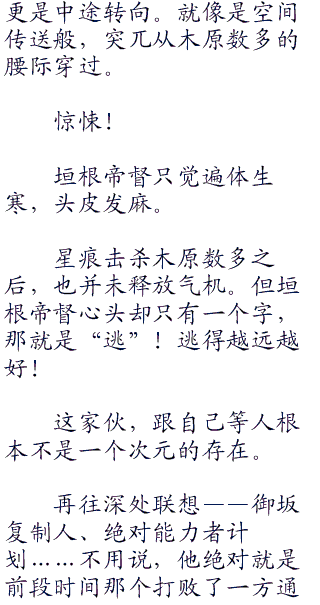 更是中途转向。就像是空间
传送般，突兀从木原数多的
腰际穿过。
惊悚！
垣根帝督只觉遍体生
寒，头皮发麻。
星痕击杀木原数多之
后，也并未释放气机。但垣
根帝督心头却只有一个字，
那就是“逃”！逃得越远越
好！
这家伙，跟自己等人根
本不是一个次元的存在。
再往深处联想——御坂
复制人、绝对能力者计
划……不用说，他绝对就是
前段时间那个打败了一方通